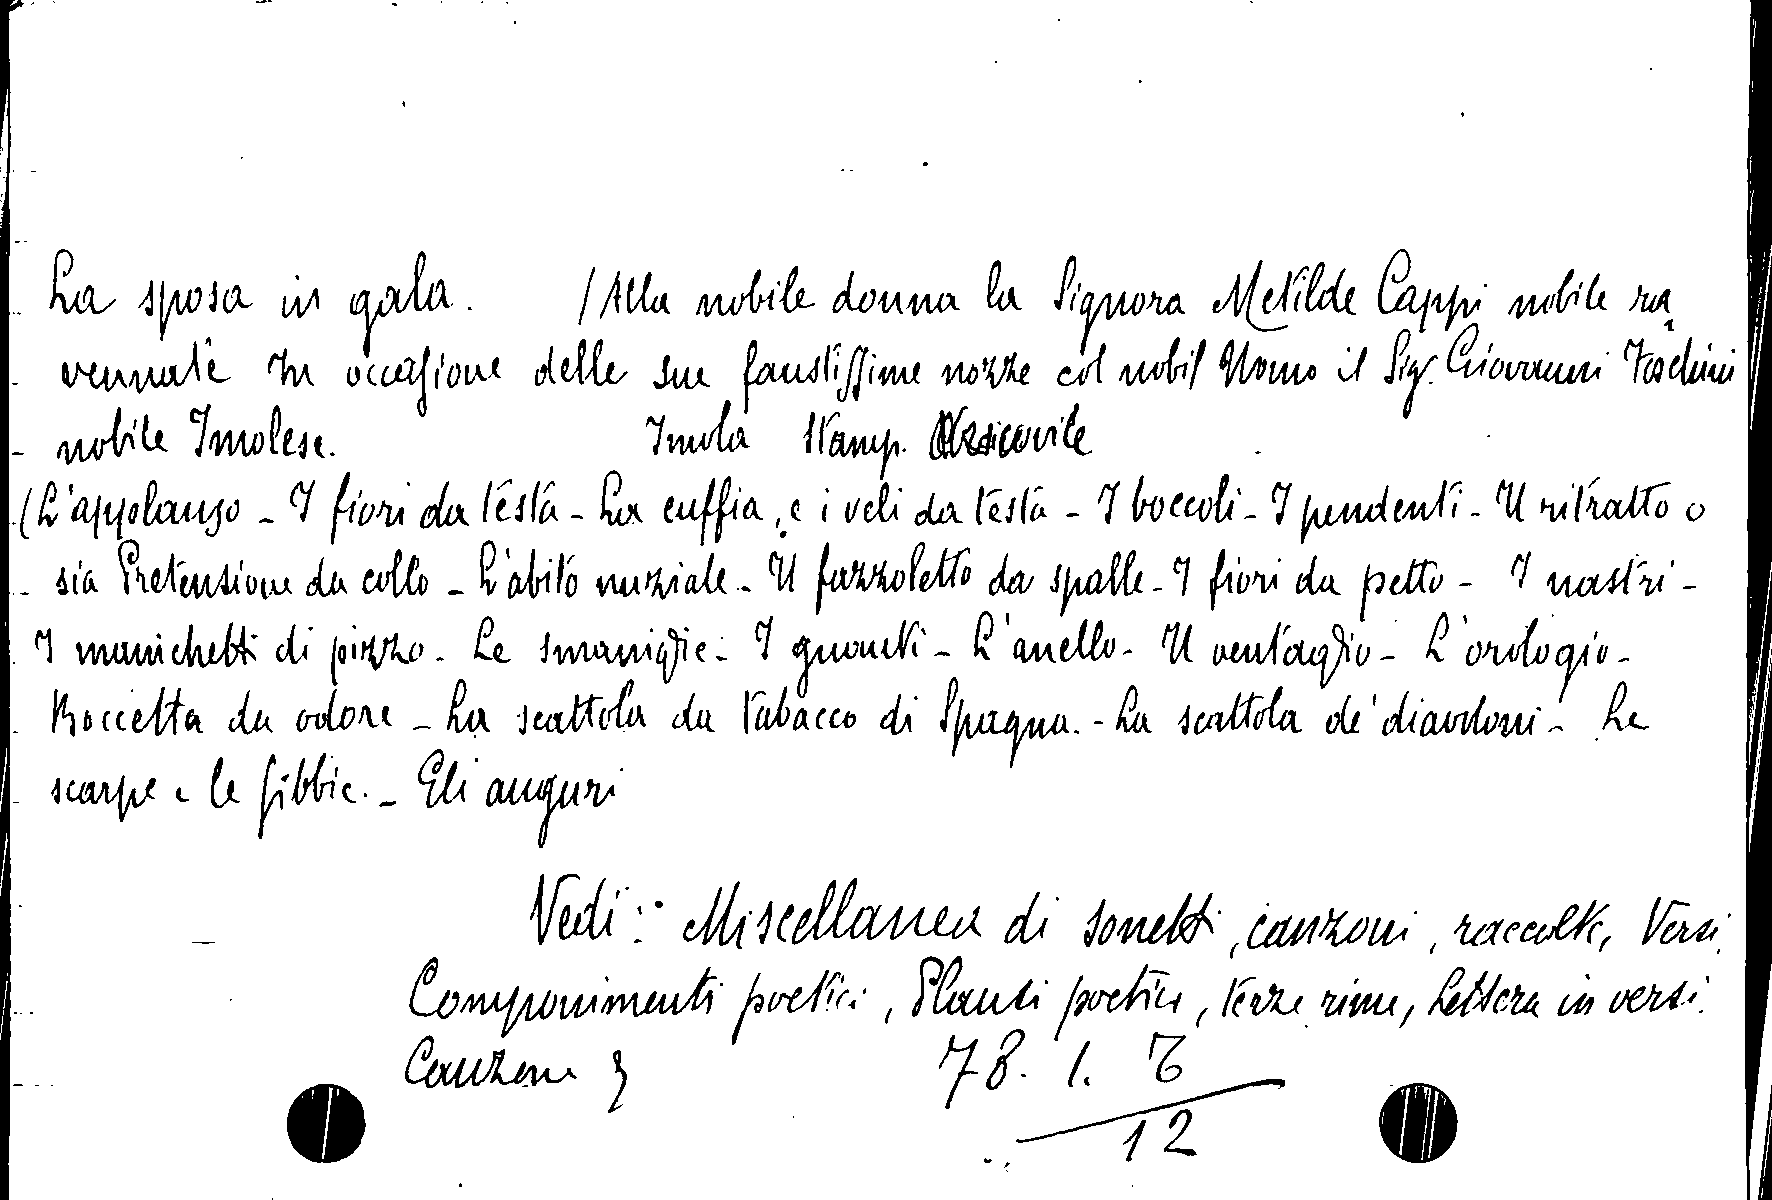 La sposa in gala. / Alla nobile donna la Signora Metilde Cappi nobile ra
vennate In occasione delle sue faustissime nozze col nobil Uomo il Sig. Giovanni Toschini
nobile Imolese. Imola Stamp.
(L'applauso - I fiori da testa - La cuffia, e i veli da testa - I boccoli - I pendenti - Il ritratto o
sia Pretensione da collo - L'abito nuziale - Il fazzoletto da spalle - I fiori da petto - I nastri -
I manichetti di pizzo - Le smaniglie - I guanti - L'anello - Il ventaglio - L'orologio -
Boccetta da odore - La scattola da tabacco di Spagna. - La scattola de' diavoloni - Le
scarpe e le fibbie. - Gli auguri
Vedi: Miscellanea di sonetti, canzoni, raccolte, Versi,
Componimenti poetici, Plausi poetici, terze rime, Lettera in versi.
Canzone
78. 1. 6
12